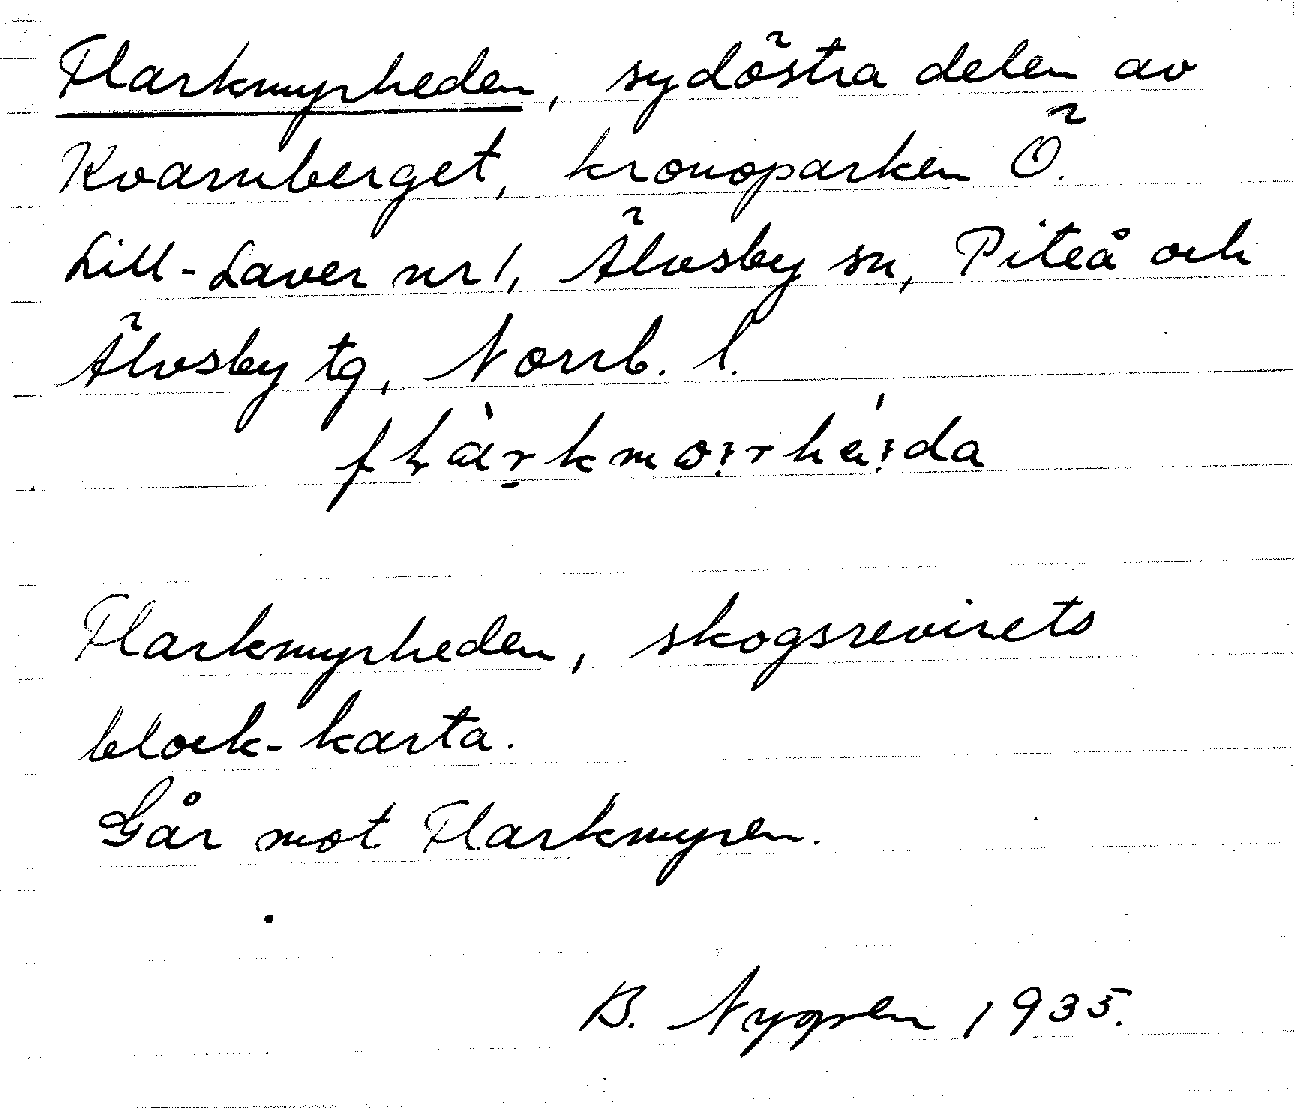 Flarkmyrheden, sydöstra delen av
Kvarnberget, kronoparken Ö.
Lill-Laver nr 1, Älvsby sn, Piteå och
Älvsby tg, Norrb. l.
flàrkmo:rrhé:da
Flarkmyrheden, skogsrevirets
block-karta.
Går mot Flarkmyren.
B. Nygren 1935.